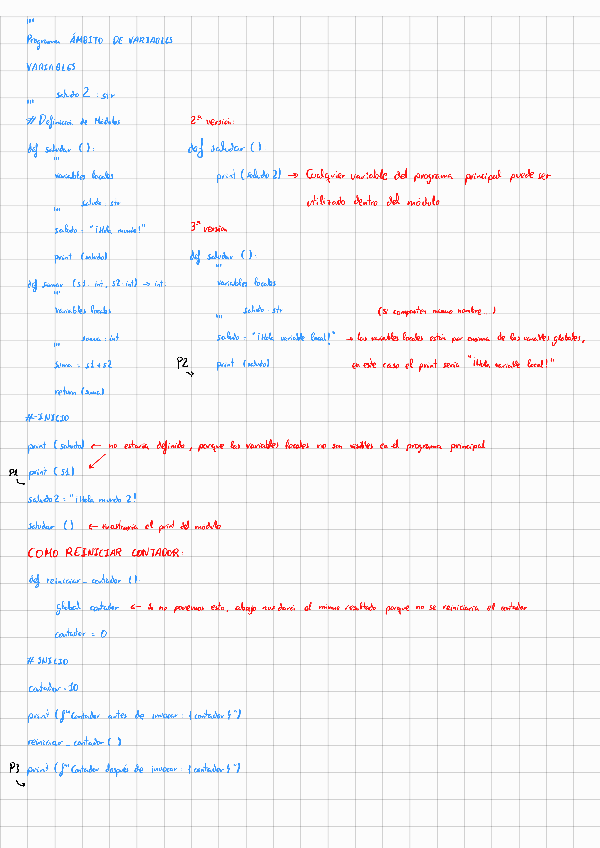 """
Programa ÁMBITO DE VARIABLES
VARIABLES
saludo 2 : str
"""
# Definición de Módulos
def saludar ():
"""
variables locales
saludo : str
"""
saludo = "¡Hola mundo!"
print (saludo)
def sumar (s1 : int, s2 : int) → int:
"""
variables locales
suma : int
"""
suma = s1 + s2
return (suma)
2ª versión:
def saludar ()
print (saludo 2) → Cualquier variable del programa principal puede ser
utilizado dentro del módulo
3ª versión
def saludar ():
"""
variables locales
saludo : str
"""
(si comparten mismo nombre...)
saludo = "¡Hola variable local!" → las variables locales están por encima de las variables globales,
P2 print (saludo) en este caso el print sería "¡Hola variable local!"
#-INICIO
print (saludo) ← no estaría definido, porque las variables locales no son visibles en el programa principal
P1 print (s1)
saludo 2 = "¡Hola mundo 2!
saludar () ← mostraría el print del modulo
COMO REINICIAR CONTADOR:
def reiniciar_contador ():
global contador ← si no ponemos esto, abajo nos daría el mismo resultado porque no se reiniciaría el contador
contador = 0
# INICIO
contador = 10
print (f"Contador antes de invocar : {contador}")
reiniciar_contador ()
P3 print (f"Contador después de invocar : {contador}")